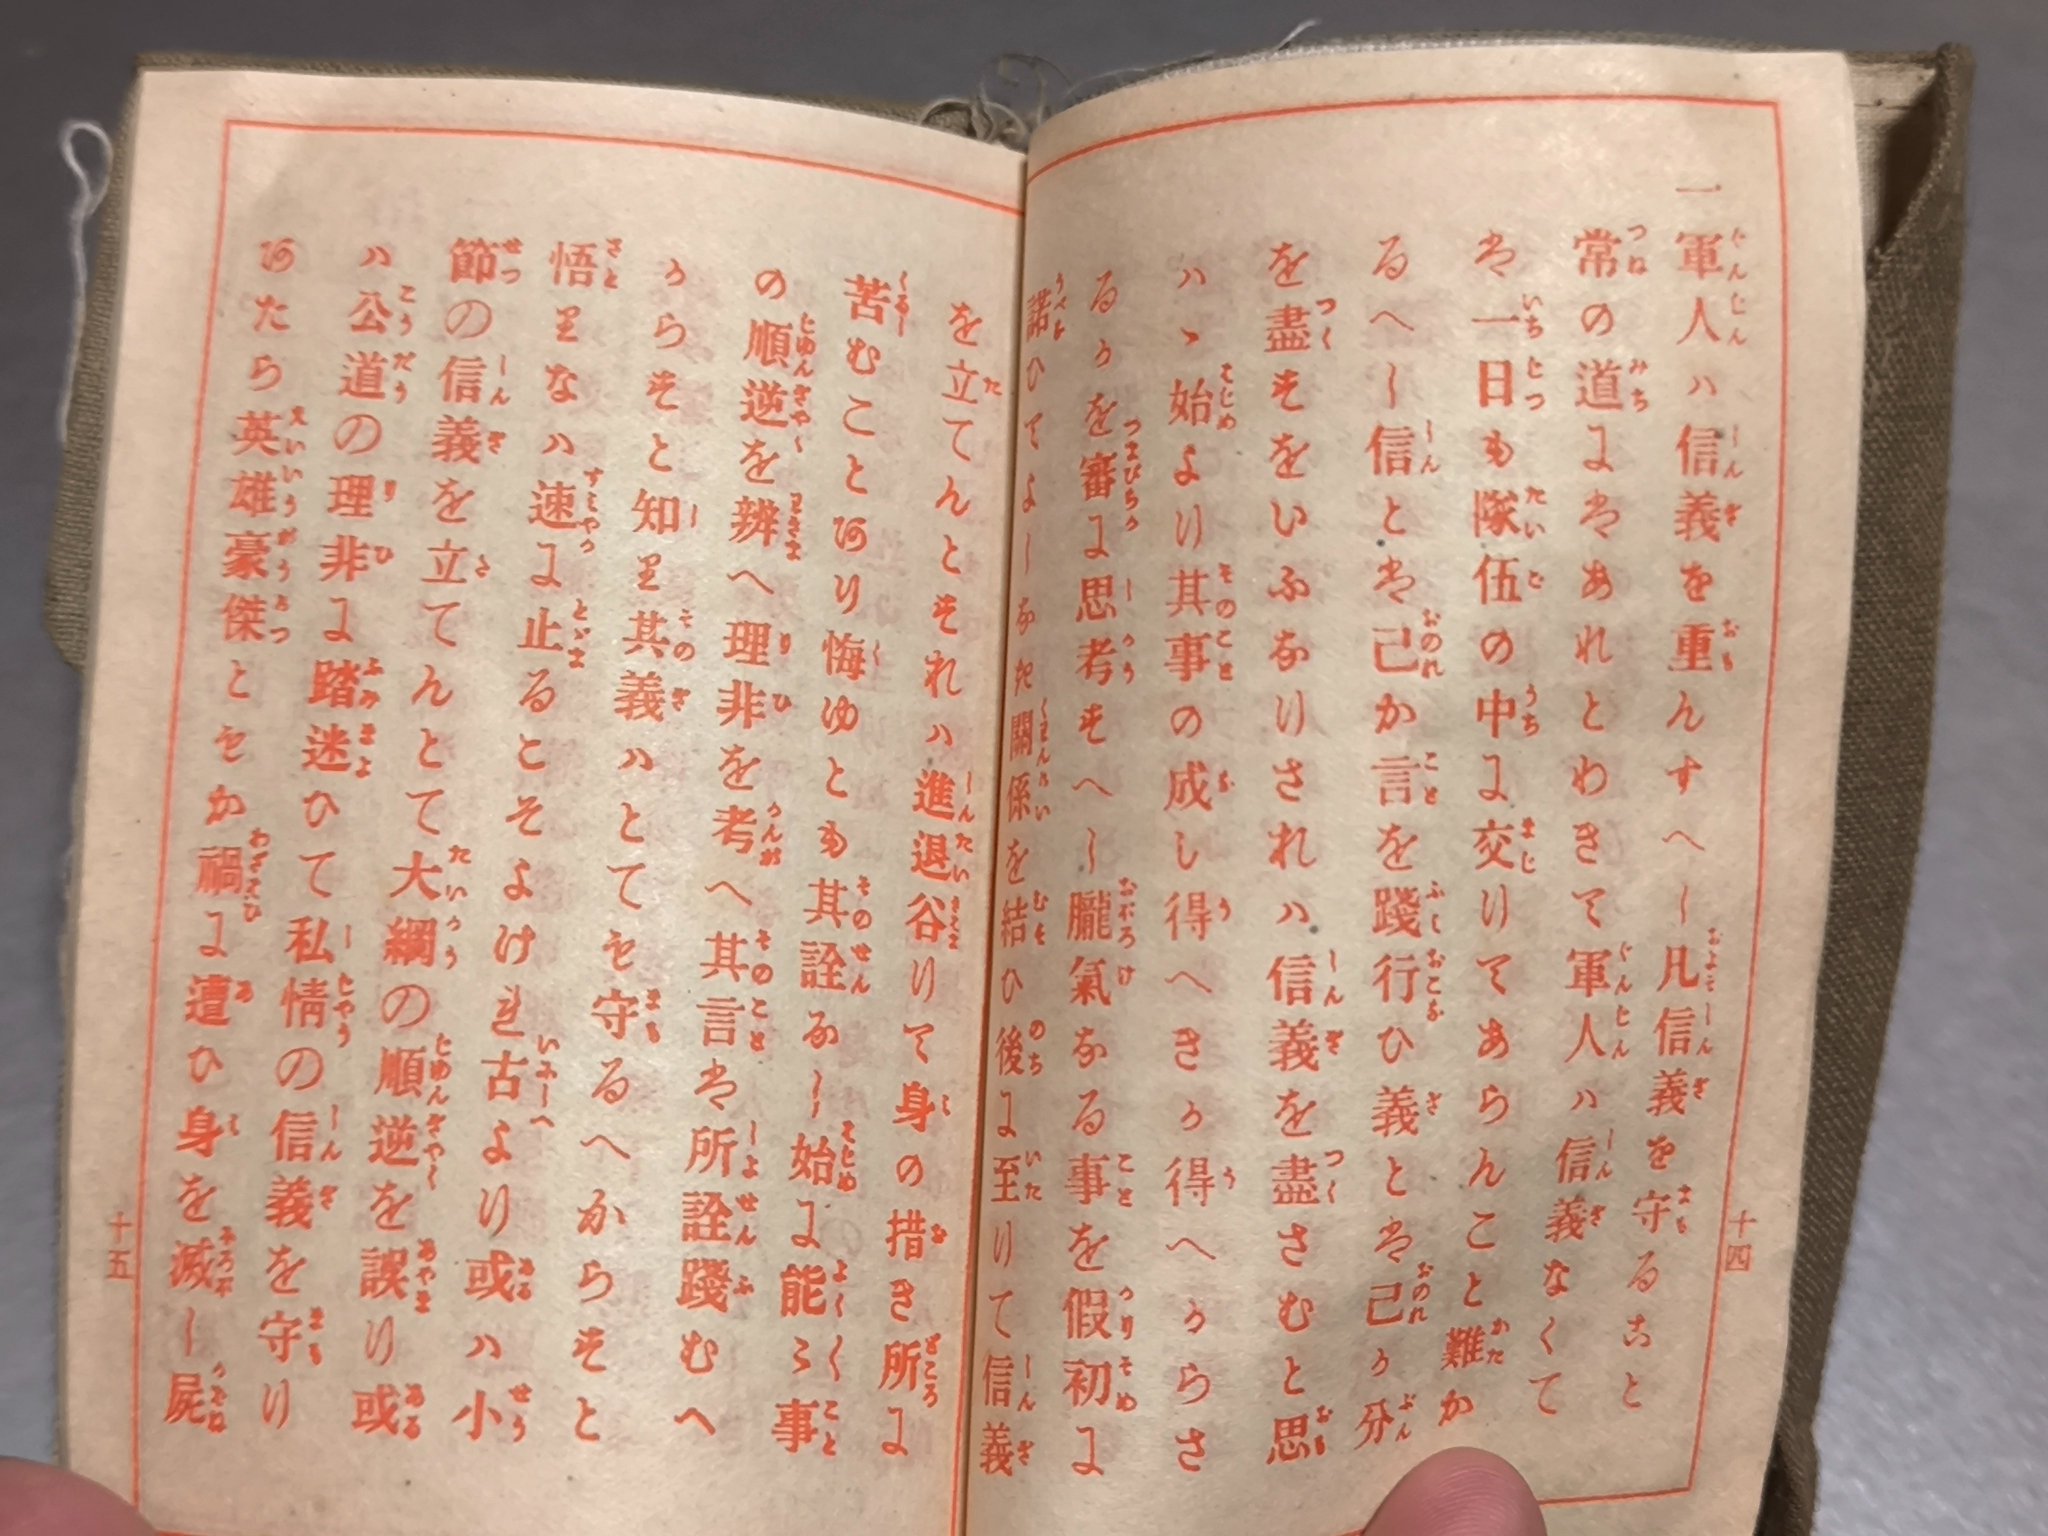 一軍人ハ信義を重んすへし凡信義を守ること
常の道にはあれとわきて軍人ハ信義なくて
は一日も隊伍の中に交りてあらんこと難か
るへし信とは己か言を踐行ひ義とは己か分
を盡すをいふなりされハ信義を盡さむと思
ハヽ始より其事の成し得へきか得へからさ
るかを審に思考すへし朧氣なる事を假初に
諾ひてよしなき關係を結ひ後に至りて信義
を立てんとすれハ進退谷りて身の措き所に
苦むことあり悔ゆとも其詮なし始に能々事
の順逆を辨へ理非を考へ其言は所詮踐むへ
からすと知り其義ハとても守るへからすと
悟りなハ速に止るこそよけれ古より或ハ小
節の信義を立てんとて大綱の順逆を誤り或
ハ公道の理非に踏迷ひて私情の信義を守り
あたら英雄豪傑ともか禍に遭ひ身を滅し屍
十四
十五